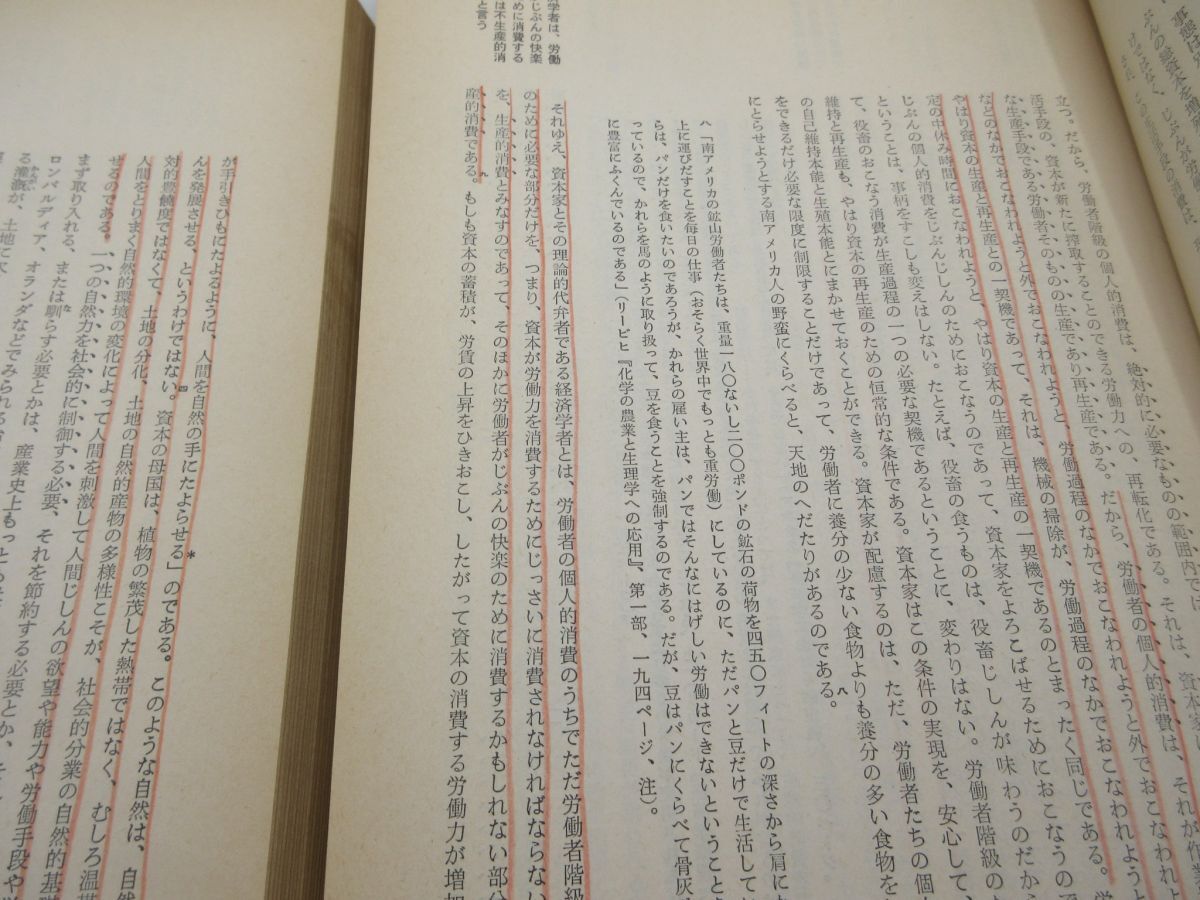 事態は
ぶんの総資本を
けではなく、じぶんが労働
され、この生活手段の消費は
立つ。だから、労働者階級の個人的消費は、絶対的に必要なものの範囲内では、資本
活手段の、資本が新たに搾取することのできる労働力への、再転化である。それは、資本
な生産手段である労働者そのものの生産であり再生産である。だから、労働者の個人的消費は、それが作業
などのなかでおこなわれようと外でおこなわれようと、労働過程のなかでおこなわれようと外でおこなわれようと
やはり資本の生産と再生産との一契機であって、それは、機械の掃除が、労働過程のなかでおこなわれようと
定の中休み時間におこなわれようと、やはり資本の生産と再生産の一契機であるのとまったく同じである。労
じぶんの個人的消費をじぶんじしんのためにおこなうのであって、資本家をよろこばせるためにおこなうので
ということは、事柄をすこしも変えはしない。たとえば、役畜の食うものは、役畜じしんが味わうのだから
て、役畜のおこなう消費が生産過程の一つの必要な契機であるということに、変わりはない。労働者階級の
維持と再生産も、やはり資本の再生産のための恒常的な条件である。資本家はこの条件の実現を、安心して
の自己維持本能と生殖本能とにまかせておくことができる。資本家が配慮するのは、ただ、労働者たちの個
をできるだけ必要な限度に制限することだけであって、労働者に養分の少ない食物よりも養分の多い食物を
にとらせようとする南アメリカ人の野蛮にくらべると、天地のへだたりがあるのである。
ハ「南アメリカの鉱山労働者たちは、重量一八〇ないし二〇〇ポンドの鉱石の荷物を四五〇フィートの深さから肩に
上に運びだすことを毎日の仕事(おそらく世界中でもっとも重労働)にしているのに、ただパンと豆だけで生活して
らは、パンだけを食いたいのであろうが、かれらの雇い主は、パンではそんなにはげしい労働はできないということ
っているので、かれらを馬のように取り扱って、豆を食うことを強制するのである。だが、豆はパンにくらべて骨灰
に豊富にふくんでいるのである」(リービヒ『化学の農業と生理学への応用』、第一部、一九四ページ、注)。
それゆえ、資本家とその理論的代弁者である経済学者とは、労働者の個人的消費のうちでただ労働者階級
のために必要な部分だけを、つまり、資本が労働力を消費するためにじっさいに消費されなければならない
を、生産的消費とみなすのであって、そのほかに労働者がじぶんの快楽のために消費するかもしれない部分
産的消費である。もしも資本の蓄積が、労賃の上昇をひきおこし、したがって資本の消費する労働力が増加
済学者は、労働
じぶんの快楽
めに消費する
は不生産的消
と言う
が手引きひもにたよるように、人間を自然の手にたよらせる」のである。このような自然は、自然
んを発展させる、というわけではない。資本の母国は、植物の繁茂した熱帯ではなく、むしろ温帯
対的豊饒度ではなくて、土地の分化、土地の自然的産物の多様性こそが、社会的分業の自然的基礎
人間をとりまく自然的環境の変化によって人間を刺激して人間じしんの欲望や能力や労働手段や
せるのである。一つの自然力を社会的に制御する必要、それを節約する必要とか、そ
まず取り入れる、または馴らす必要とかは、産業史上もっとも
ロンバルディア、オランダなどでみられる
る灌漑が、土地に